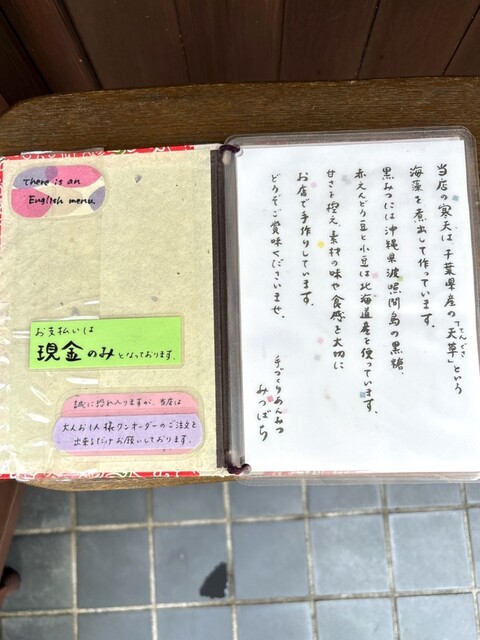 There is an
English menu.
お支払いは
現金のみとなっております。
誠に恐れ入りますが、当店は
大人お1人様ワンオーダーのご注文を
出来るだけお願いしております。
当店の寒天は千葉県産の「天草」という
てんぐさ
海藻を煮出して作っています。
黒みつには沖縄県波照間島の黒糖、
赤えんどう豆と小豆は北海道産を使っています。
甘さを控え、素材の味や食感を大切に
お店で手作りしています。
どうぞご賞味くださいませ。
手づくりあんみつ
みつばち